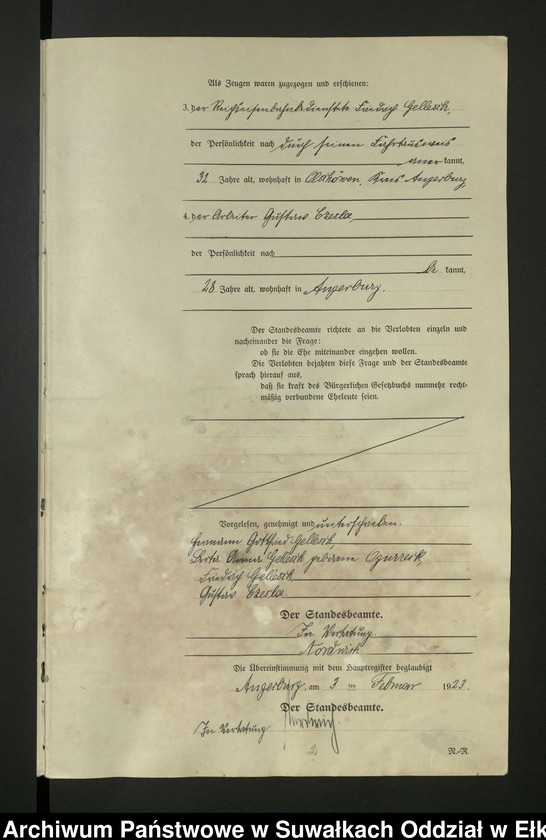 Als Zeugen waren zugezogen und erschienen:
3. der Reichseisenbahnbedienstete Friedrich Gellesch,
der Persönlichkeit nach durch seinen Fahrtausweis
aner kannt,
32 Jahre alt, wohnhaft in Kreis Angerburg
4. der Arbeiter Gustav Czerla,
der Persönlichkeit nach
be kannt,
28 Jahre alt, wohnhaft in Angerburg.
Der Standesbeamte richtete an die Verlobten einzeln und
nacheinander die Frage:
ob sie die Ehe miteinander eingehen wollen.
Die Verlobten bejahten diese Frage und der Standesbeamte
sprach hierauf aus,
daß sie kraft des Bürgerlichen Gesetzbuchs nunmehr recht-
mäßig verbundene Eheleute seien.
Vorgelesen, genehmigt und unterschrieben.
Hermann Gottfried Gellesch,
Berta Anna Gellesch geborene Ogurreck,
Friedrich Gellesch
Gustav Czerla.
Der Standesbeamte.
In Vertretung
Die Übereinstimmung mit dem Hauptregister beglaubigt
Angerburg, am 3 ten Februar 1923.
Der Standesbeamte.
In Vertretung
2
R.-R.
Archiwum Państwowe w Suwałkach Oddział w Ełk